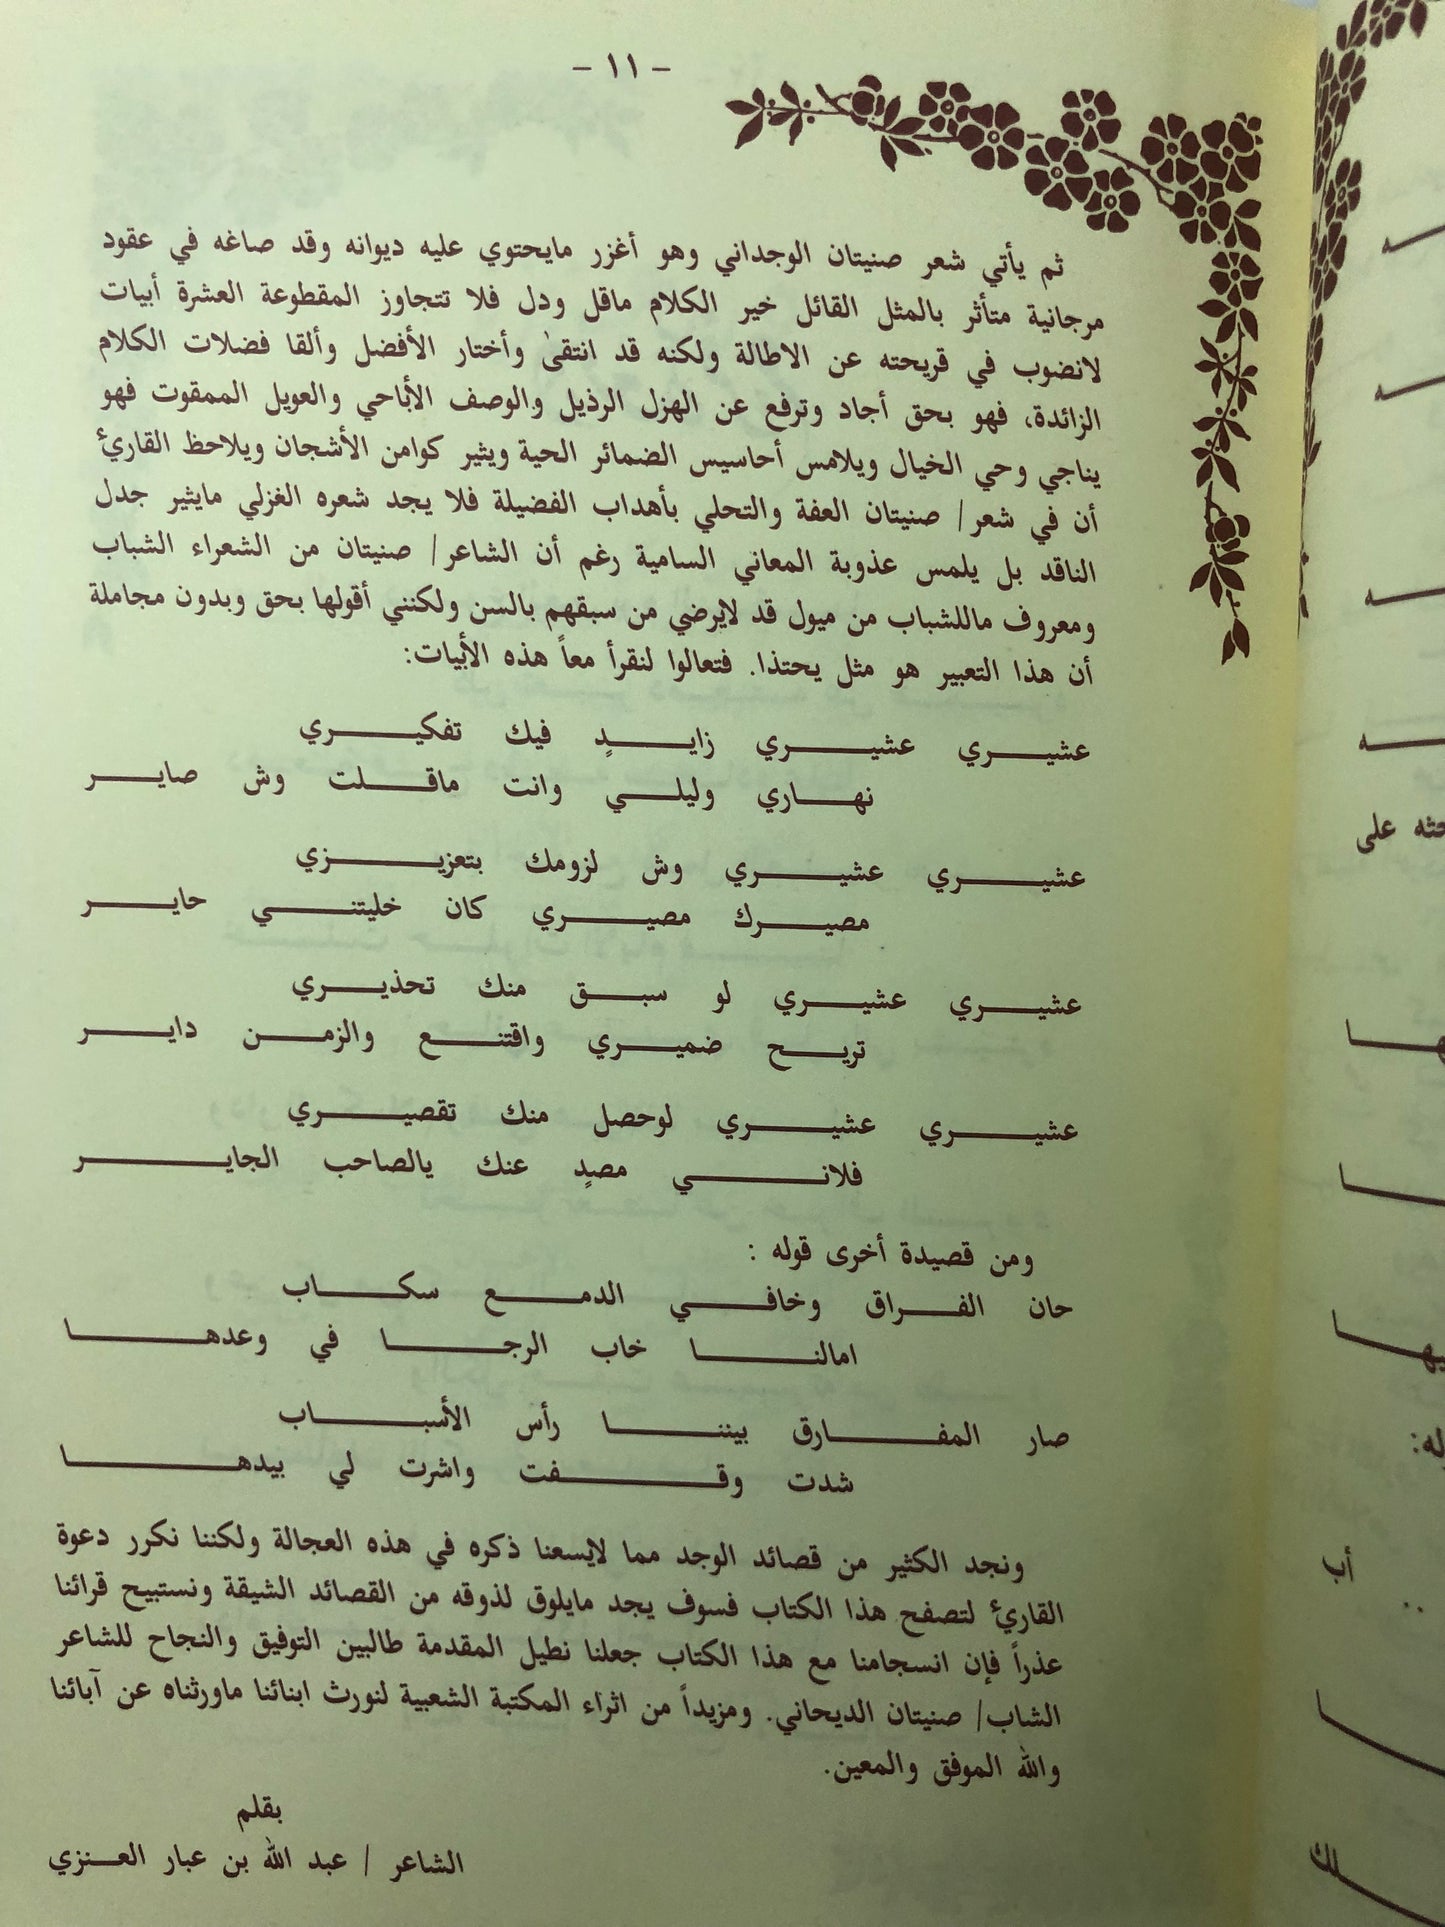 - ١١ -
ثم يأتي شعر صنيتان الوجداني وهو أغزر مايحتوي عليه ديوانه وقد صاغه في عقود
مرجانية متأثر بالمثل القائل خير الكلام ماقل ودل فلا تتجاوز المقطوعة العشرة أبيات
لانضوب في قريحته عن الاطالة ولكنه قد انتقىٰ وأختار الأفضل وألقا فضلات الكلام
الزائدة، فهو بحق أجاد وترفع عن الهزل الرذيل والوصف الأباحي والعويل الممقوت فهو
يناجي وحي الخيال ويلامس أحاسيس الضمائر الحية ويثير كوامن الأشجان ويلاحظ القاريء
أن في شعر/ صنيتان العفة والتحلي بأهداب الفضيلة فلا يجد شعره الغزلي مايثير جدل
الناقد بل يلمس عذوبة المعاني السامية رغم أن الشاعر/ صنيتان من الشعراء الشباب
ومعروف ماللشباب من ميول قد لايرضي من سبقهم بالسن ولكنني أقولها بحق وبدون مجاملة
أن هذا التعبير هو مثل يحتذا. فتعالوا لنقرأ معاً هذه الأبيات:
عشيـــري عشيـــري زايـــدٍ فيك تفكيـــري
نهـــاري وليلـــي وانت ماقـــلت وش صايـــر
عشيـــري عشيـــري وش لزومك بتعزيـــزي
مصيـــرك مصيـــري كان خليتنـــي حايـــر
عشيـــري عشيـــري لو سبـــق منك تحذيـــري
تريـــح ضميـــري واقتنـــع والزمـــن دايـــر
عشيـــري عشيـــري لوحصل منك تقصيـــري
فلانـــي مصدٍ عنك يالصاحب الجايـــر
ومن قصيدة أخرى قوله :
حان الفـــراق وخافـــي الدمـــع سكـــاب
امالنـــا خاب الرجـــا في وعدهـــا
صار المفـــارق بيننـــا رأس الأسبـــاب
شدت وقـــفت واشرت لي بيدهـــا
ونجد الكثير من قصائد الوجد مما لايسعنا ذكره في هذه العجالة ولكننا نكرر دعوة
القاريء لتصفح هذا الكتاب فسوف يجد مايلوق لذوقه من القصائد الشيقة ونستبيح قرائنا
عذراً فإن انسجامنا مع هذا الكتاب جعلنا نطيل المقدمة طالبين التوفيق والنجاح للشاعر
الشاب/ صنيتان الديحاني. ومزيداً من اثراء المكتبة الشعبية لنورث ابنائنا ماورثناه عن آبائنا
والله الموفق والمعين.
بقلم
الشاعر / عبد الله بن عبار العـــنزي